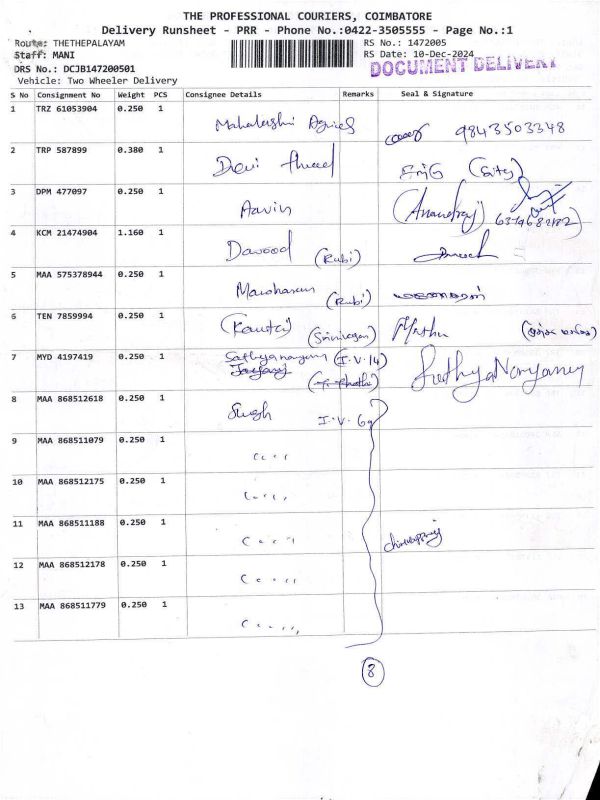 THE PROFESSIONAL COURIERS, COIMBATORE
Delivery Runsheet - PRR - Phone No.:0422-3505555 - Page No.:1
Route: THETHEPALAYAM
RS No.: 1472005
Staff: MANI
RS Date: 10-Dec-2024
DRS No.: DCJB147200501
DOCUMENT DELIVERY
Vehicle: Two Wheeler Delivery
S No Consignment No Weight PCS Consignee Details Remarks Seal & Signature
1 TRZ 61053904 0.250 1 9843503348
2 TRP 587899 0.380 1 Devi
3 DPM 477097 0.250 1 Aavin (Anandraj)
4 KCM 21474904 1.160 1 Dawood (Rubi)
5 MAA 575378944 0.250 1 Manoharan (Rubi)
6 TEN 7859994 0.250 1 (Srinivasan)
7 MYD 4197419 0.250 1 Sathyanarayanan (I.V.14) SathyaNarayanan
8 MAA 868512618 0.250 1 Singh I.V. 69
9 MAA 868511079 0.250 1
10 MAA 868512175 0.250 1
11 MAA 868511188 0.250 1
12 MAA 868512178 0.250 1
13 MAA 868511779 0.250 1
8